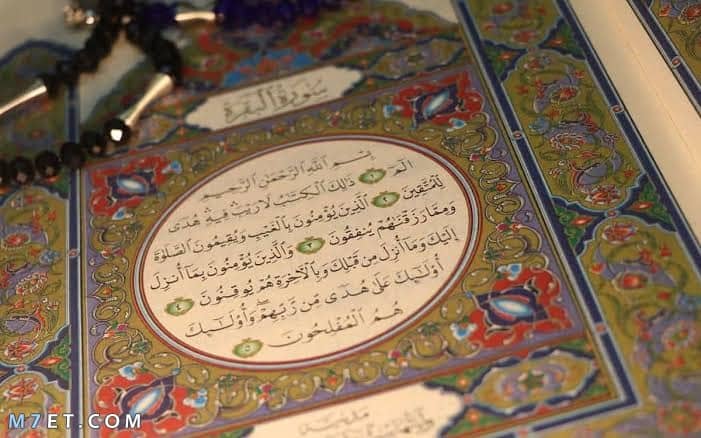 سورة البقرة
بِسْمِ اللَّهِ الرَّحْمَٰنِ الرَّحِيمِ
الٓمٓ ١ ذَٰلِكَ الْكِتَٰبُ لَا رَيْبَ فِيهِ هُدًى
لِّلْمُتَّقِينَ ٢ الَّذِينَ يُؤْمِنُونَ بِالْغَيْبِ وَيُقِيمُونَ الصَّلَوٰةَ
وَمِمَّا رَزَقْنَٰهُمْ يُنفِقُونَ ٣ وَالَّذِينَ يُؤْمِنُونَ بِمَا أُنزِلَ
إِلَيْكَ وَمَا أُنزِلَ مِن قَبْلِكَ وَبِالْآخِرَةِ هُمْ يُوقِنُونَ ٤
أُولَٰئِكَ عَلَىٰ هُدًى مِّن رَّبِّهِمْ ۖ وَأُولَٰئِكَ
هُمُ الْمُفْلِحُونَ ٥
مدنية
M7ET.COM